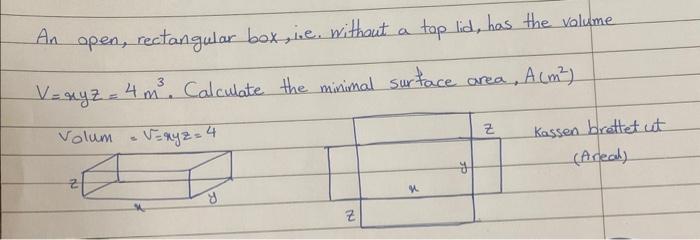 An open, rectangular box, i.e. without a top lid, has the volume
V=xyz = 4 m³. Calculate the minimal surface area, A(m²)
Volum = V=xyz=4
z
x
y
z
y
x
z
Kassen brettet ut
(Areal)